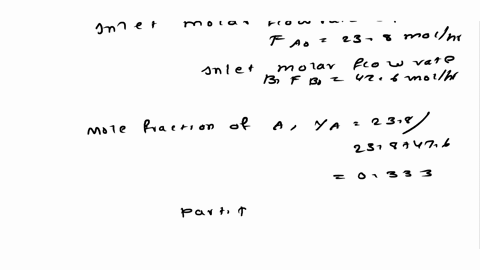 Inlet molar flow rate
F A0 = 23.8 mol/hr
Inlet molar flow rate
B, F B0 = 47.6 mol/hr
Mole fraction of A, YA = 23.8/
23.8+47.6
= 0.333
Parti